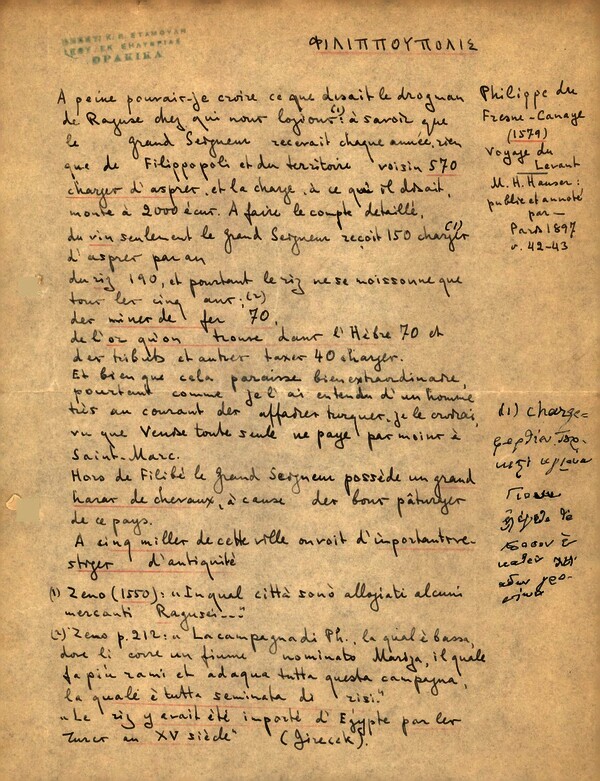 ΘΡΑΚΙΚΑ
ΦΙΛΙΠΠΟΥΠΟΛΙΣ
A peine pouvais-je croire ce que disait le drogman
de Raguse chez qui nous logions(1): à savoir que
le grand Seigneur recevait chaque année, rien
que de Filippopoli et du territoire voisin 570
charges d'aspres, et la charge, à ce qu'il disait,
monte à 2000 écus. A faire le compte détaillé,
du vin seulement le grand Seigneur reçoit 150 charges (1)
d'aspres par an
du riz 190, et pourtant le riz ne se moissonne que
tous les cinq ans: (2)
des mines de fer 70,
de l'or qu'on trouve dans l'Hèbre 70 et
des tributs et autres taxes 40 charges.
Et bien que cela paraisse bien extraordinaire,
pourtant comme je l'ai entendu d'un homme
très au courant des affaires turques, je le croirai,
vu que Venise toute seule ne paye pas moins à
Saint-Marc.
Hors de Filibé le Grand Seigneur possède un grand
haras de chevaux, à cause des bons pâturages
de ce pays.
A cinq milles de cette ville on voit d'importants ve-
stiges d'antiquité
(1) Zeno (1550): "In qual città sono allogiati alcuni
mercanti Ragusei..."
(2) Zeno p. 212: "La campagna di Ph., la qual è bassa,
dove li corre un fiume nominato Mariza, il quale
fa più rami et adaqua tutta questa campagna,
la quale è tutta seminata di risi."
"Le riz y avait été importé d'Egypte par les
Turcs au XV siècle" (Jirecek).
Philippe du
Fresne-Canaye
(1579)
Voyage du
Levant
M. H. Hauser:
publié et annoté
par —
Paris 1897
p. 42-43
(1) charge =